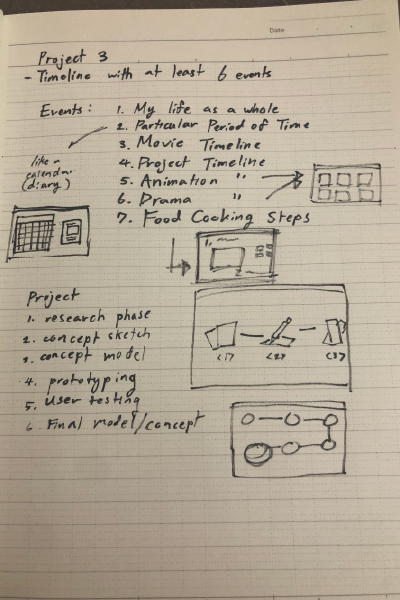 Date
Project 3
- Timeline with at least 6 events
Events: 1. My life as a whole
2. Particular Period of Time
3. Movie Timeline
4. Project Timeline
5. Animation "
6. Drama "
7. Food Cooking Steps
like a
calendar
(diary)
1.
2
Project
1. research phase
2. concept sketch
3. concept model
4. prototyping
5. User testing
6. Final model/concept
<1> <2> <3>